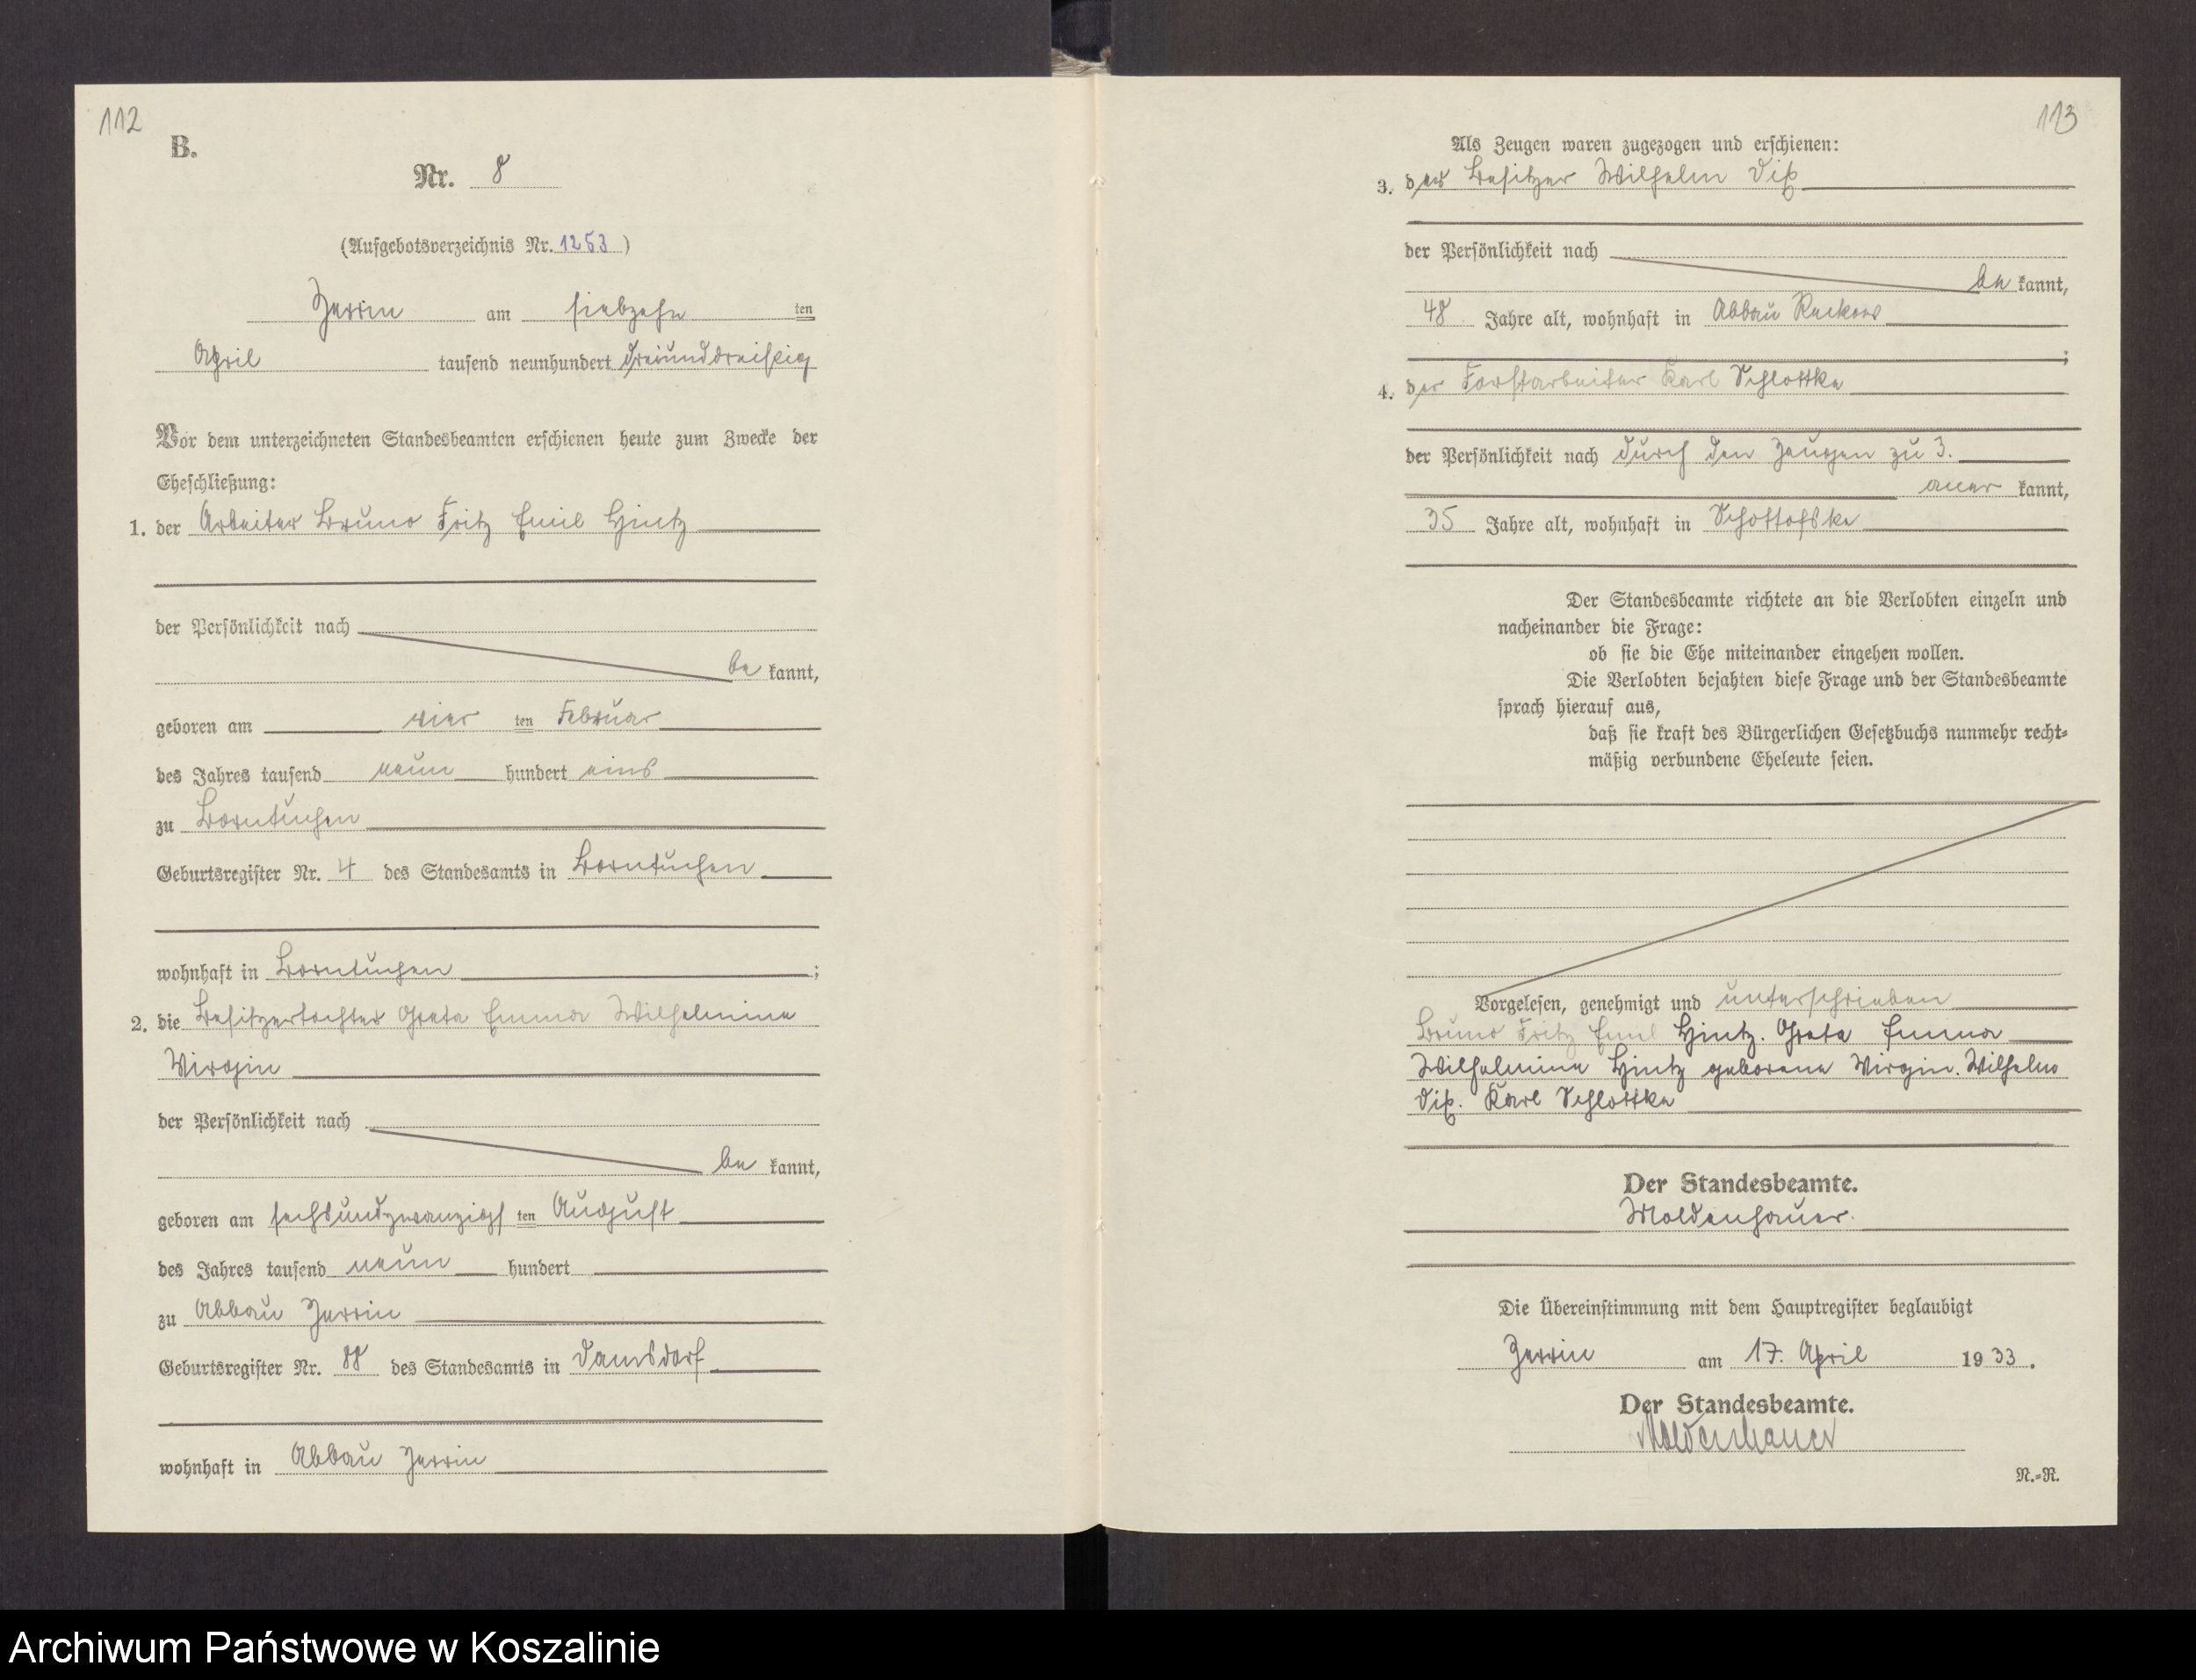 112
B.
Nr. 8
(Aufgebotsverzeichnis Nr. 1253)
Zerrin am siebzehn ten
April tausend neunhundert dreiunddreißig
Vor dem unterzeichneten Standesbeamten erschienen heute zum Zwecke der
Eheschließung:
1. der Arbeiter Bruno Fritz Emil Hintz
der Persönlichkeit nach
be kannt,
geboren am vier ten Februar
des Jahres tausend neun hundert eins
zu Borntuchen
Geburtsregister Nr. 4 des Standesamts in Borntuchen
wohnhaft in Borntuchen ;
2. die Besitzertochter Greta Emma Wilhelmine
Virgin
der Persönlichkeit nach
be kannt,
geboren am sechsundzwanzigs ten August
des Jahres tausend neun hundert
zu Abbau Zerrin
Geburtsregister Nr. 88 des Standesamts in Damsdorf
wohnhaft in Abbau Zerrin
113
Als Zeugen waren zugezogen und erschienen:
3. der Besitzer Wilhelm
der Persönlichkeit nach
be kannt,
48 Jahre alt, wohnhaft in Abbau Reckow
;
4. der Forstarbeiter Karl Schlottke
der Persönlichkeit nach durch den Zeugen zu 3.
aner kannt,
35 Jahre alt, wohnhaft in Schottofske
Der Standesbeamte richtete an die Verlobten einzeln und
nacheinander die Frage:
ob sie die Ehe miteinander eingehen wollen.
Die Verlobten bejahten diese Frage und der Standesbeamte
sprach hierauf aus,
daß sie kraft des Bürgerlichen Gesetzbuchs nunmehr recht-
mäßig verbundene Eheleute seien.
Vorgelesen, genehmigt und unterschrieben
Bruno Fritz Emil Hintz. Greta Emma
Wilhelmine Hintz geborene Virgin. Wilhelm
Karl Schlottke
Der Standesbeamte.
Moldenhauer.
Die Übereinstimmung mit dem Hauptregister beglaubigt
Zerrin am 17. April 1933.
Der Standesbeamte.
Moldenhauer
N.-R.
Archiwum Państwowe w Koszalinie